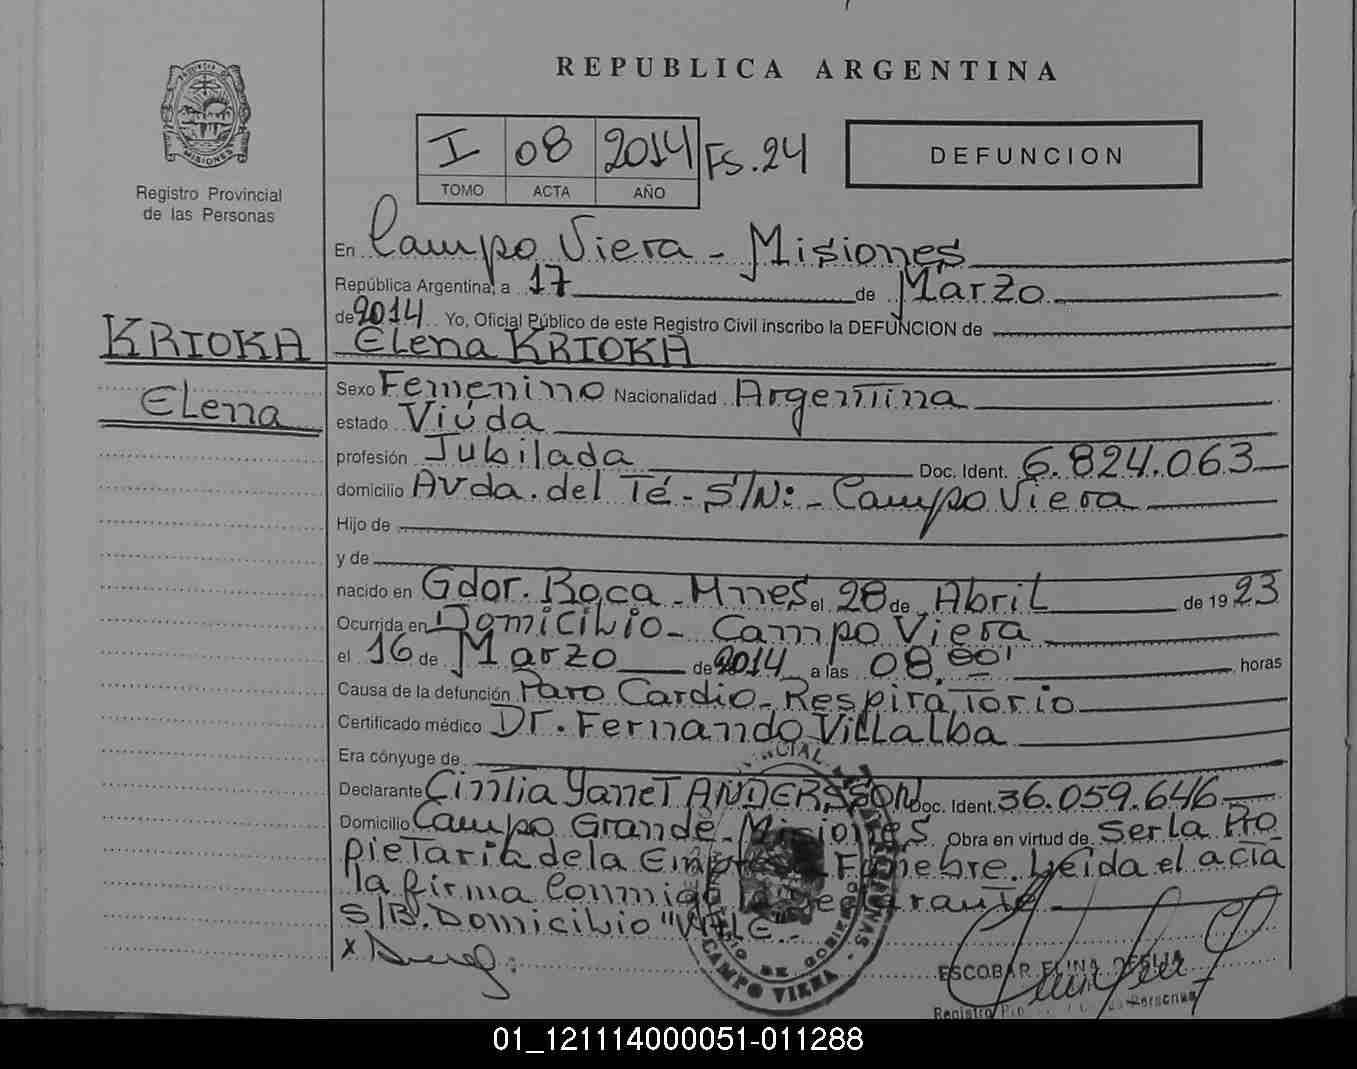 REPUBLICA ARGENTINA
PROVINCIA DE MISIONES
Registro Provincial
de las Personas
I 08 2014 Fs. 24
TOMO ACTA AÑO
DEFUNCION
En Campo Viera - Misiones
República Argentina, a 17 de Marzo
de 2014 Yo, Oficial Público de este Registro Civil inscribo la DEFUNCION de
KRIOKA Elena KRIOKA
Elena
Sexo Femenino Nacionalidad Argentina
estado Viuda
profesión Jubilada Doc. Ident. 6.824.063
domicilio Avda. del Té - S/N: - Campo Viera
Hijo de
y de
nacido en Gdor. Roca - Mnes el 28 de Abril de 19 23
Ocurrida en Domicilio - Campo Viera
el 16 de Marzo de 2014 a las 08,00' horas
Causa de la defunción Paro Cardio-Respiratorio
Certificado médico Dr. Fernando Villalba
Era cónyuge de
Declarante Cintia Yanet ANDERSSON Doc. Ident. 36.059.646
Domicilio Campo Grande - Misiones Obra en virtud de Ser la Pro
pietaria de la Empresa Funebre. Leida el acta
la firma Conmigo la declarante
S/B. Domicilio "VALE".-
CAMPO VIERA
ESCOBAR ELINA
Registro de Personas
01_121114000051-011288